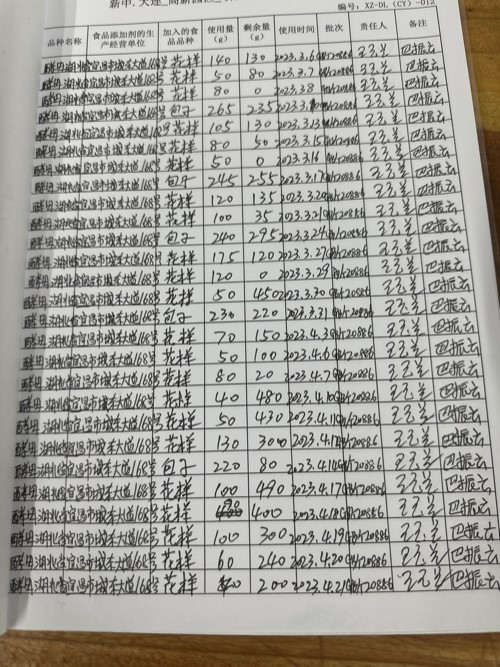 编号：XZ-DL（CY）-012
品种名称 食品添加剂的生产经营单位 加入的食品品种 使用量(g) 剩余量(g) 使用时间 批次 责任人 备注
酵母 湖北省宜昌市城东大道168号 花样 140 130 2023.3.6 20886 巴振云
酵母 湖北省宜昌市城东大道168号 花样 50 80 2023.3.7 20886 巴振云
酵母 湖北省宜昌市城东大道168号 花样 80 0 2023.3.8 20886 巴振云
酵母 湖北省宜昌市城东大道168号 包子 265 235 2023.3.10 20886 巴振云
酵母 湖北省宜昌市城东大道168号 花样 105 130 2023.3.13 20886 巴振云
酵母 湖北省宜昌市城东大道168号 花样 80 50 2023.3.15 20886 巴振云
酵母 湖北省宜昌市城东大道168号 花样 50 0 2023.3.16 20886 巴振云
酵母 湖北省宜昌市城东大道168号 包子 245 255 2023.3.17 20886 巴振云
酵母 湖北省宜昌市城东大道168号 花样 120 135 2023.3.20 20886 巴振云
酵母 湖北省宜昌市城东大道168号 花样 100 35 2023.3.21 20886 巴振云
酵母 湖北省宜昌市城东大道168号 包子 240 295 2023.3.24 20886 巴振云
酵母 湖北省宜昌市城东大道168号 花样 175 120 2023.3.27 20886 巴振云
酵母 湖北省宜昌市城东大道168号 花样 120 0 2023.3.29 20886 巴振云
酵母 湖北省宜昌市城东大道168号 花样 50 450 2023.3.30 20886 巴振云
酵母 湖北省宜昌市城东大道168号 包子 230 220 2023.3.31 20886 巴振云
酵母 湖北省宜昌市城东大道168号 花样 70 150 2023.4.3 20886 巴振云
酵母 湖北省宜昌市城东大道168号 花样 50 100 2023.4.6 20886 巴振云
酵母 湖北省宜昌市城东大道168号 花样 80 20 2023.4.7 20886 巴振云
酵母 湖北省宜昌市城东大道168号 花样 40 480 2023.4.10 20886 巴振云
酵母 湖北省宜昌市城东大道168号 花样 50 430 2023.4.11 20886 巴振云
酵母 湖北省宜昌市城东大道168号 花样 130 300 2023.4.12 20886 巴振云
酵母 湖北省宜昌市城东大道168号 包子 220 80 2023.4.14 20886 巴振云
酵母 湖北省宜昌市城东大道168号 花样 100 490 2023.4.17 20886 巴振云
酵母 湖北省宜昌市城东大道168号 花样 400 2023.4.18 20886 巴振云
酵母 湖北省宜昌市城东大道168号 花样 100 300 2023.4.19 20886 巴振云
酵母 湖北省宜昌市城东大道168号 花样 60 240 2023.4.20 20886 巴振云
酵母 湖北省宜昌市城东大道168号 花样 200 2023.4.21 20886 巴振云